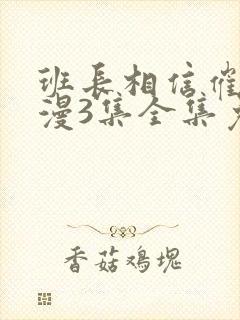 班长相信催
漫3集全集
香菇鸡塊